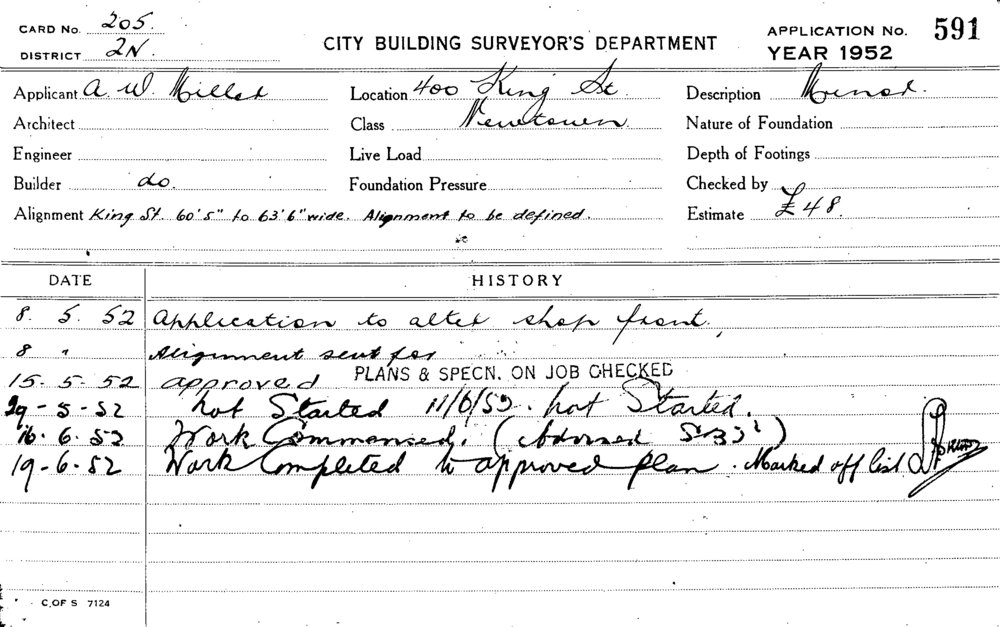 CARD No. 205.
DISTRICT 2N.
CITY BUILDING SURVEYOR'S DEPARTMENT
APPLICATION NO. 591
YEAR 1952
Applicant A. W. Miller
Location 400 King St.
Description Minor.
Architect
Class Newtown
Nature of Foundation
Engineer
Live Load
Depth of Footings
Builder do.
Foundation Pressure
Checked by
Alignment King St. 60'5" to 63'6" wide. Alignment to be defined.
Estimate £48.
DATE HISTORY
8. 5. 52 Application to alter shop front.
8 " Alignment sent for
15. 5. 52 approved PLANS & SPECN. ON JOB CHECKED
29-5-52 not Started 11/6/52. not Started.
16. 6. 52 Work Commensed. (
19-6-52 Work Completed to approved plan. Marked off list
C. OF S 7124